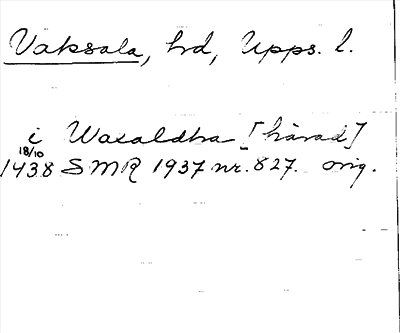 Vaksala, hd, Upps. l.
i Waxaldha [härad]
18/10
1438 SMR 1937 nr. 827. orig.